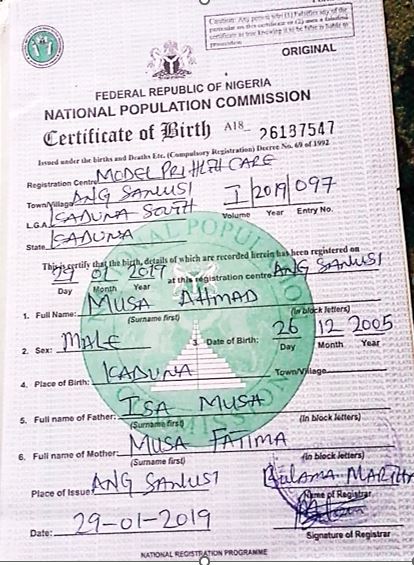 Caution: Any person who (1) falsifies any of the
particular on this certificate or (2) uses a falsified
certificate as true knowing it to be false is liable to
prosecution
ORIGINAL
FEDERAL REPUBLIC OF NIGERIA
NATIONAL POPULATION COMMISSION
Certificate of Birth A18_ 26137547
Issued under the births and Deaths Etc. (Compulsory Registration) Decree No. 69 of 1992
Registration Centre MODEL PRI HLTH CARE
Town/Village ANG SANUSI
L.G.A. KADUNA SOUTH I 2019 097
Volume Year Entry No.
State KADUNA
This certify that the birth, details of which are recorded herein has been registered on
29 01 2019 at this registration centre ANG SANUSI
Day Month Year
1. Full Name: MUSA AHMAD
(Surname first) (In block letters)
2. Sex: MALE 3. Date of Birth: 26 12 2005
Day Month Year
4. Place of Birth: KADUNA Town/Village
5. Full name of Father: ISA MUSA
(Surname first) (In block letters)
6. Full name of Mother: MUSA FATIMA
(Surname first) (In block letters)
Place of Issue ANG SANUSI
Name of Registrar
Date: 29-01-2019
Signature of Registrar
NATIONAL REGISTRATION PROGRAMME